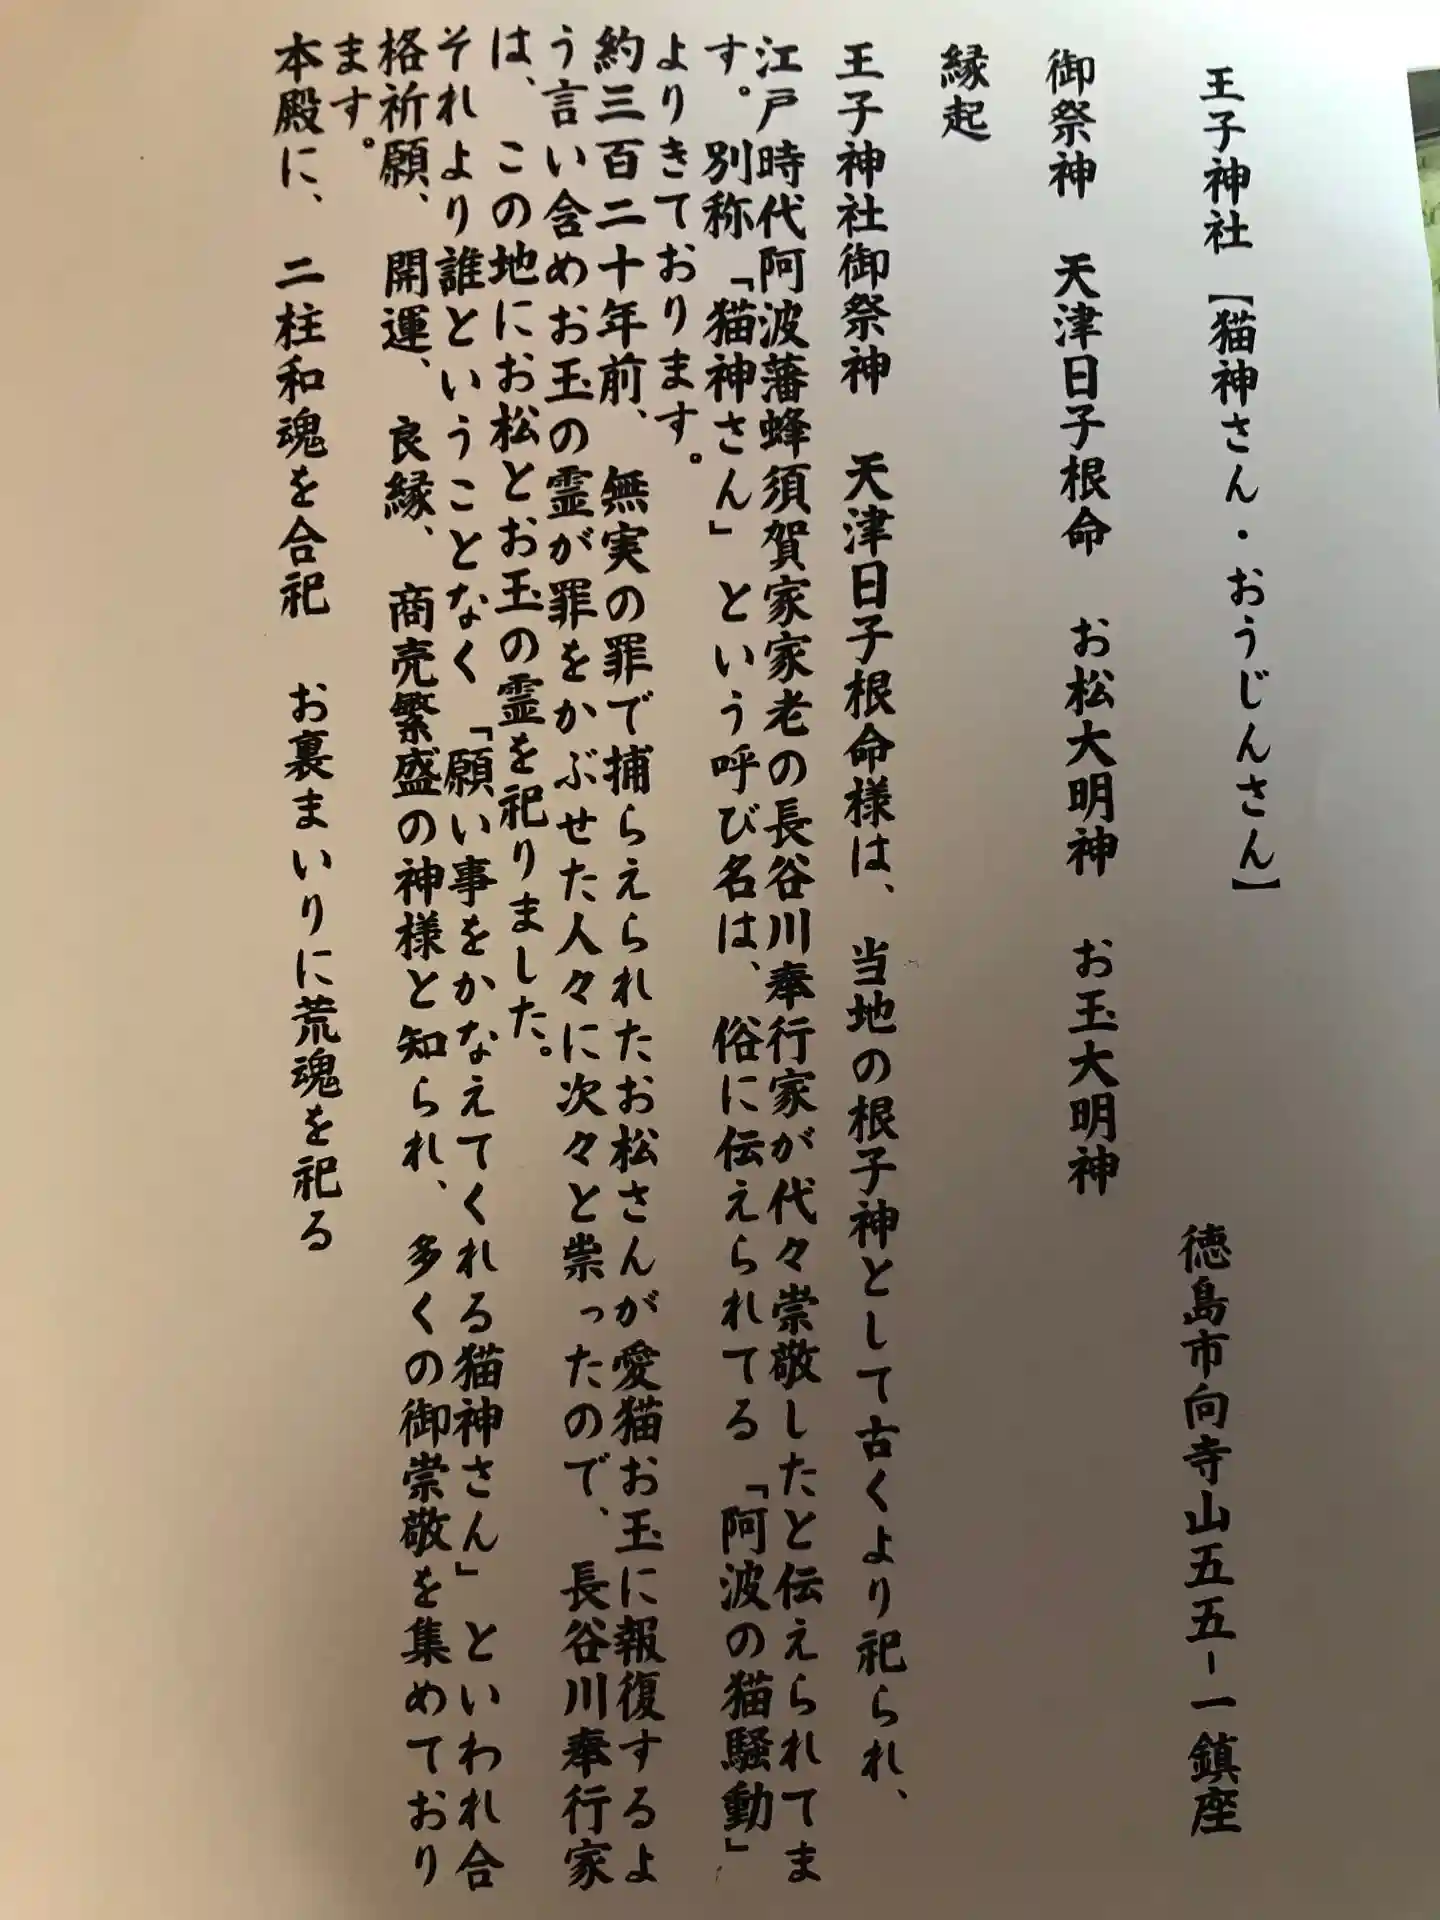 王子神社【猫神さん・おうじんさん】
徳島市向寺山五五-一鎮座
御祭神　天津日子根命　お松大明神　お玉大明神
縁起
王子神社御祭神　天津日子根命様は、当地の根子神として古くより祀られ、
江戸時代阿波藩蜂須賀家家老の長谷川奉行家が代々崇敬したと伝えられてま
す。別称「猫神さん」という呼び名は、俗に伝えられてる「阿波の猫騒動」
よりきております。
約三百二十年前、無実の罪で捕らえられたお松さんが愛猫お玉に報復するよ
う言い含めお玉の霊が罪をかぶせた人々に次々と祟ったので、長谷川奉行家
は、この地にお松とお玉の霊を祀りました。
それより誰ということなく「願い事をかなえてくれる猫神さん」といわれ合
格祈願、開運、良縁、商売繁盛の神様と知られ、多くの御崇敬を集めており
ます。
本殿に、二柱和魂を合祀　お裏まいりに荒魂を祀る